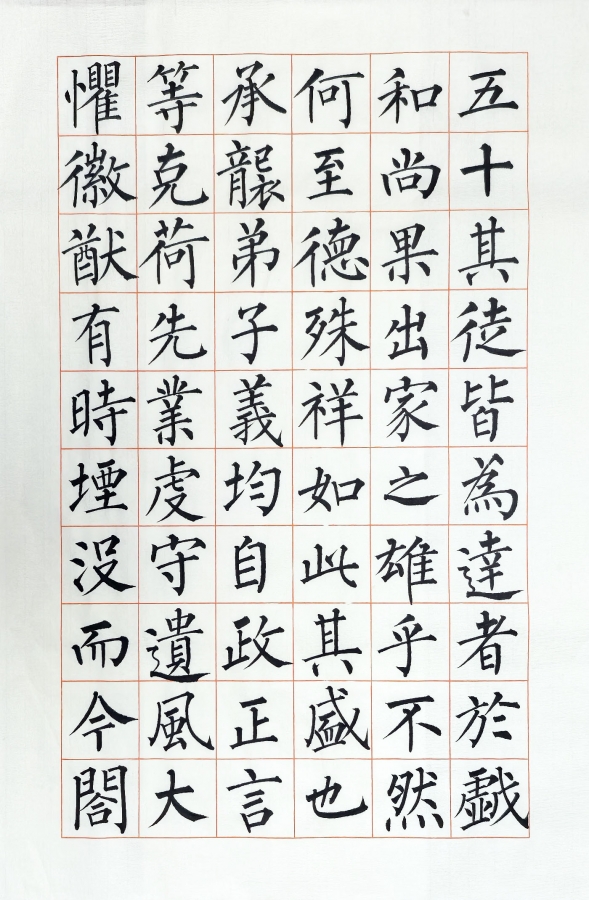 五十其徒皆為達者於戲
和尚果出家之雄乎不然
何至德殊祥如此其盛也
承襲弟子義均自政正言
等克荷先業虔守遺風大
懼徽猷有時堙没而今閤